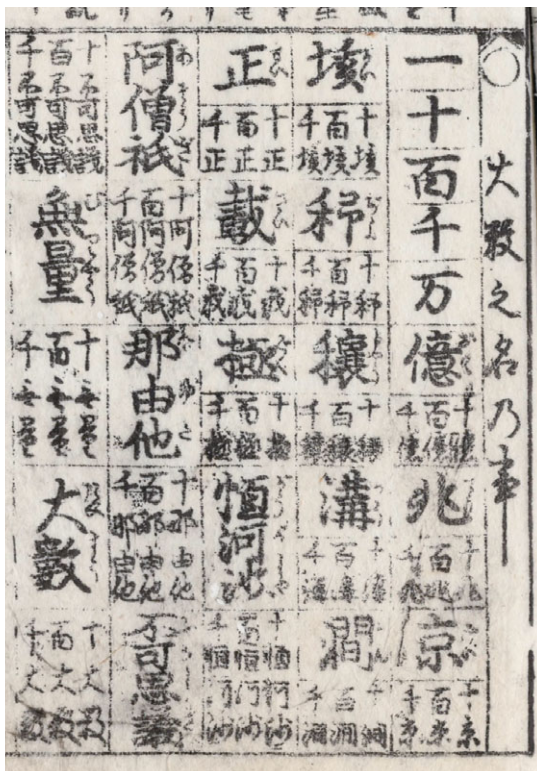 〇 大数之名乃事
一
十
百
千
万
億
十億
百億
千億
兆
十兆
百兆
千兆
京
十京
百京
千京
垓
十垓
百垓
千垓
秭
十秭
百秭
千秭
穰
十穰
百穰
千穰
溝
十溝
百溝
千溝
澗
十澗
百澗
千澗
正
十正
百正
千正
載
十載
百載
千載
極
十極
百極
千極
恒河沙
十恒河沙
百恒河沙
千恒河沙
阿僧祇
十阿僧祇
百阿僧祇
千阿僧祇
那由他
十那由他
百那由他
千那由他
不可思議
十不可思議
百不可思議
千不可思議
無量
十無量
百無量
千無量
大數
十大数
百大数
千大数